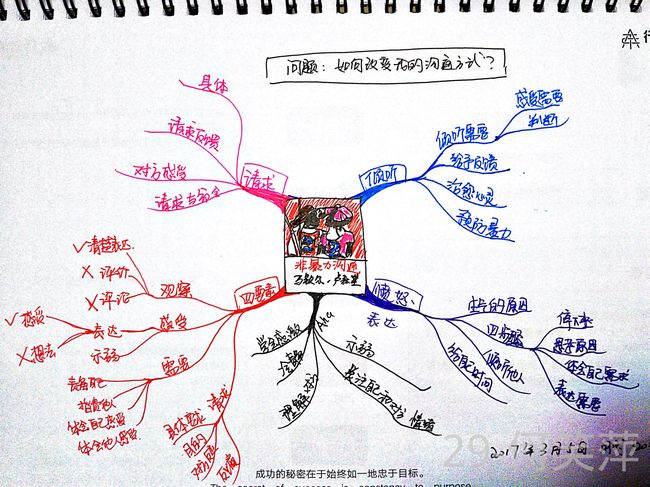 问题：如何改变我的沟通方式？
行
非暴力沟通
马歇尔·卢森堡
倾听
倾听需要
感受需要
判断
给予反馈
治愈心灵
预防暴力
愤怒、
表达
生气的原因
四步骤
体会自己需求
表达需要
倾听他人
给自己时间
Aha
学会感激
理解对方
示弱
关注自己和对方
情绪
四要素
观察
✓清楚表达
×评价
×评论
感受
表达
✓感受
×想法
示弱
需要
责备自己
指责他人
体会自己感受
体会他人感受
请求
具体要求
目的
反馈
请求
具体
请求反馈
对方感受
请求与命令
2017年3月5日
成功的秘密在于始终如一地忠于目标。
The secret of success is constancy to purpose